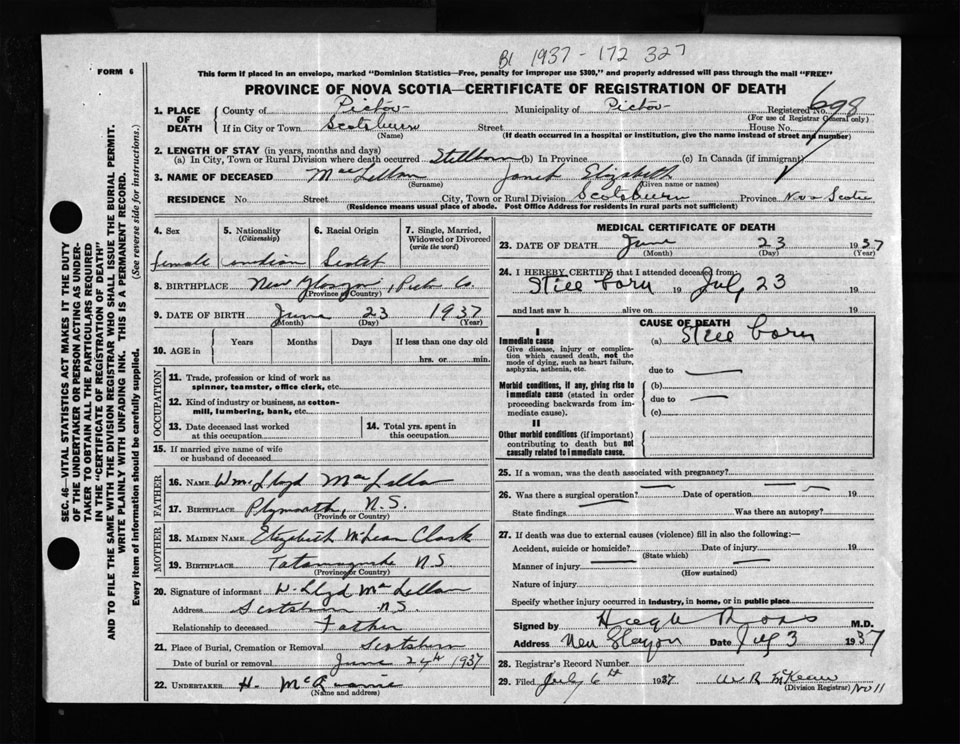 Bl 1937 - 172 327
FORM 6
This form if placed in an envelope, marked "Dominion Statistics—Free, penalty for improper use $300," and properly addressed will pass through the mail "FREE"
PROVINCE OF NOVA SCOTIA—CERTIFICATE OF REGISTRATION OF DEATH
1. PLACE OF DEATH County of Pictou Municipality of Pictou Registered No. 698
(For use of Registrar General only)
If in City or Town Scotsburn Street House No.
(Name) (If death occurred in a hospital or institution, give the name instead of street and number)
2. LENGTH OF STAY (in years, months and days)
(a) In City, Town or Rural Division where death occurred Stillborn (b) In Province (c) In Canada (if immigrant)
3. NAME OF DECEASED MacLellan Janet Elizabeth
(Surname) (Given name or names)
RESIDENCE No. Street City, Town or Rural Division Scotsburn Province Nova Scotia
(Residence means usual place of abode. Post Office Address for residents in rural parts not sufficient)
4. Sex 5. Nationality (Citizenship) 6. Racial Origin 7. Single, Married, Widowed or Divorced (write the word)
female Scotch
8. BIRTHPLACE New Glasgow, Pictou Co.
(Province or Country)
9. DATE OF BIRTH June 23 1937
(Month) (Day) (Year)
10. AGE in Years Months Days If less than one day old
hrs. or min.
OCCUPATION
11. Trade, profession or kind of work as spinner, teamster, office clerk, etc.
12. Kind of industry or business, as cotton-mill, lumbering, bank, etc.
13. Date deceased last worked at this occupation
14. Total yrs. spent in this occupation
15. If married give name of wife or husband of deceased
FATHER
16. NAME Wm Lloyd MacLellan
17. BIRTHPLACE Plymouth, N.S.
(Province or Country)
MOTHER
18. MAIDEN NAME Elizabeth McLean Clark
19. BIRTHPLACE Tatamagouche N.S.
(Province or Country)
20. Signature of informant W. Lloyd MacLellan
Address Scotsburn N.S.
Relationship to deceased Father
21. Place of Burial, Cremation or Removal Scotsburn
Date of burial or removal June 24th 1937
22. UNDERTAKER H. McQuarrie
(Name and address)
MEDICAL CERTIFICATE OF DEATH
23. DATE OF DEATH June 23 1937
(Month) (Day) (Year)
24. I HEREBY CERTIFY that I attended deceased from:
Still born 19 July 23 19
and last saw h alive on 19
CAUSE OF DEATH
I
Immediate cause
Give disease, injury or complication which caused death, not the mode of dying, such as heart failure, asphyxia, asthenia, etc.
(a) Still born
due to
Morbid conditions, if any, giving rise to immediate cause (stated in order proceeding backwards from immediate cause).
(b)
due to
(c)
II
Other morbid conditions (if important) contributing to death but not causally related to immediate cause.
25. If a woman, was the death associated with pregnancy?
26. Was there a surgical operation? Date of operation 19
State findings Was there an autopsy?
27. If death was due to external causes (violence) fill in also the following:—
Accident, suicide or homicide? Date of injury 19
(State which)
Manner of injury
(How sustained)
Nature of injury
Specify whether injury occurred in industry, in home, or in public place
Signed by Hugh Ross M.D.
Address New Glasgow Date July 3 1937
28. Registrar's Record Number
29. Filed July 6th 1937 W. R. McKean
(Division Registrar) No 11
SEC. 46—VITAL STATISTICS ACT MAKES IT THE DUTY
OF THE UNDERTAKER OR PERSON ACTING AS UNDER-
TAKER TO OBTAIN ALL THE PARTICULARS REQUIRED
IN THE "CERTIFICATE OF REGISTRATION OF DEATH"
AND TO FILE THE SAME WITH THE DIVISION REGISTRAR WHO SHALL ISSUE THE BURIAL PERMIT.
WRITE PLAINLY WITH UNFADING INK. THIS IS A PERMANENT RECORD.
Every item of information should be carefully supplied. (See reverse side for instructions.)